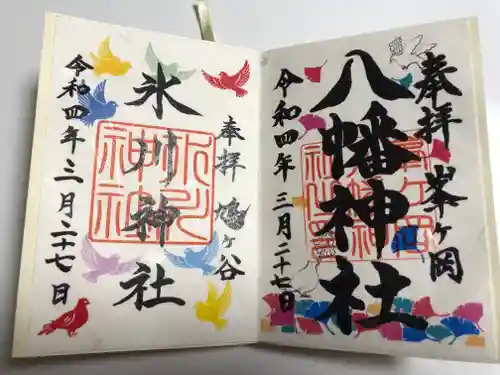 奉拝 峯ヶ岡
八幡神社
令和四年 三月二十七日
奉拝 鳩ヶ谷
氷川神社
令和四年 三月二十七日